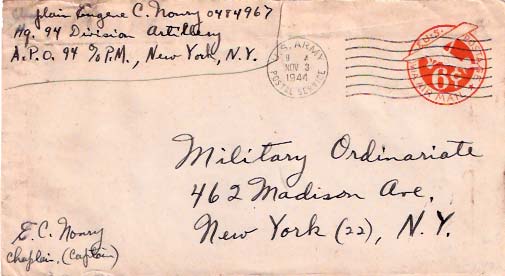 Chaplain Eugene C. Noury 0484967
Hq. 94 Division Artillery
A.P.O. 94 c/o P.M., New York, N.Y.
U.S. ARMY
NOV 3
1944
POSTAL SERVICE
U.S. POSTAGE
6¢
VIA AIR MAIL
Military Ordinariate
462 Madison Ave.
New York (22), N.Y.
E. C. Noury
Chaplain, (Captain)